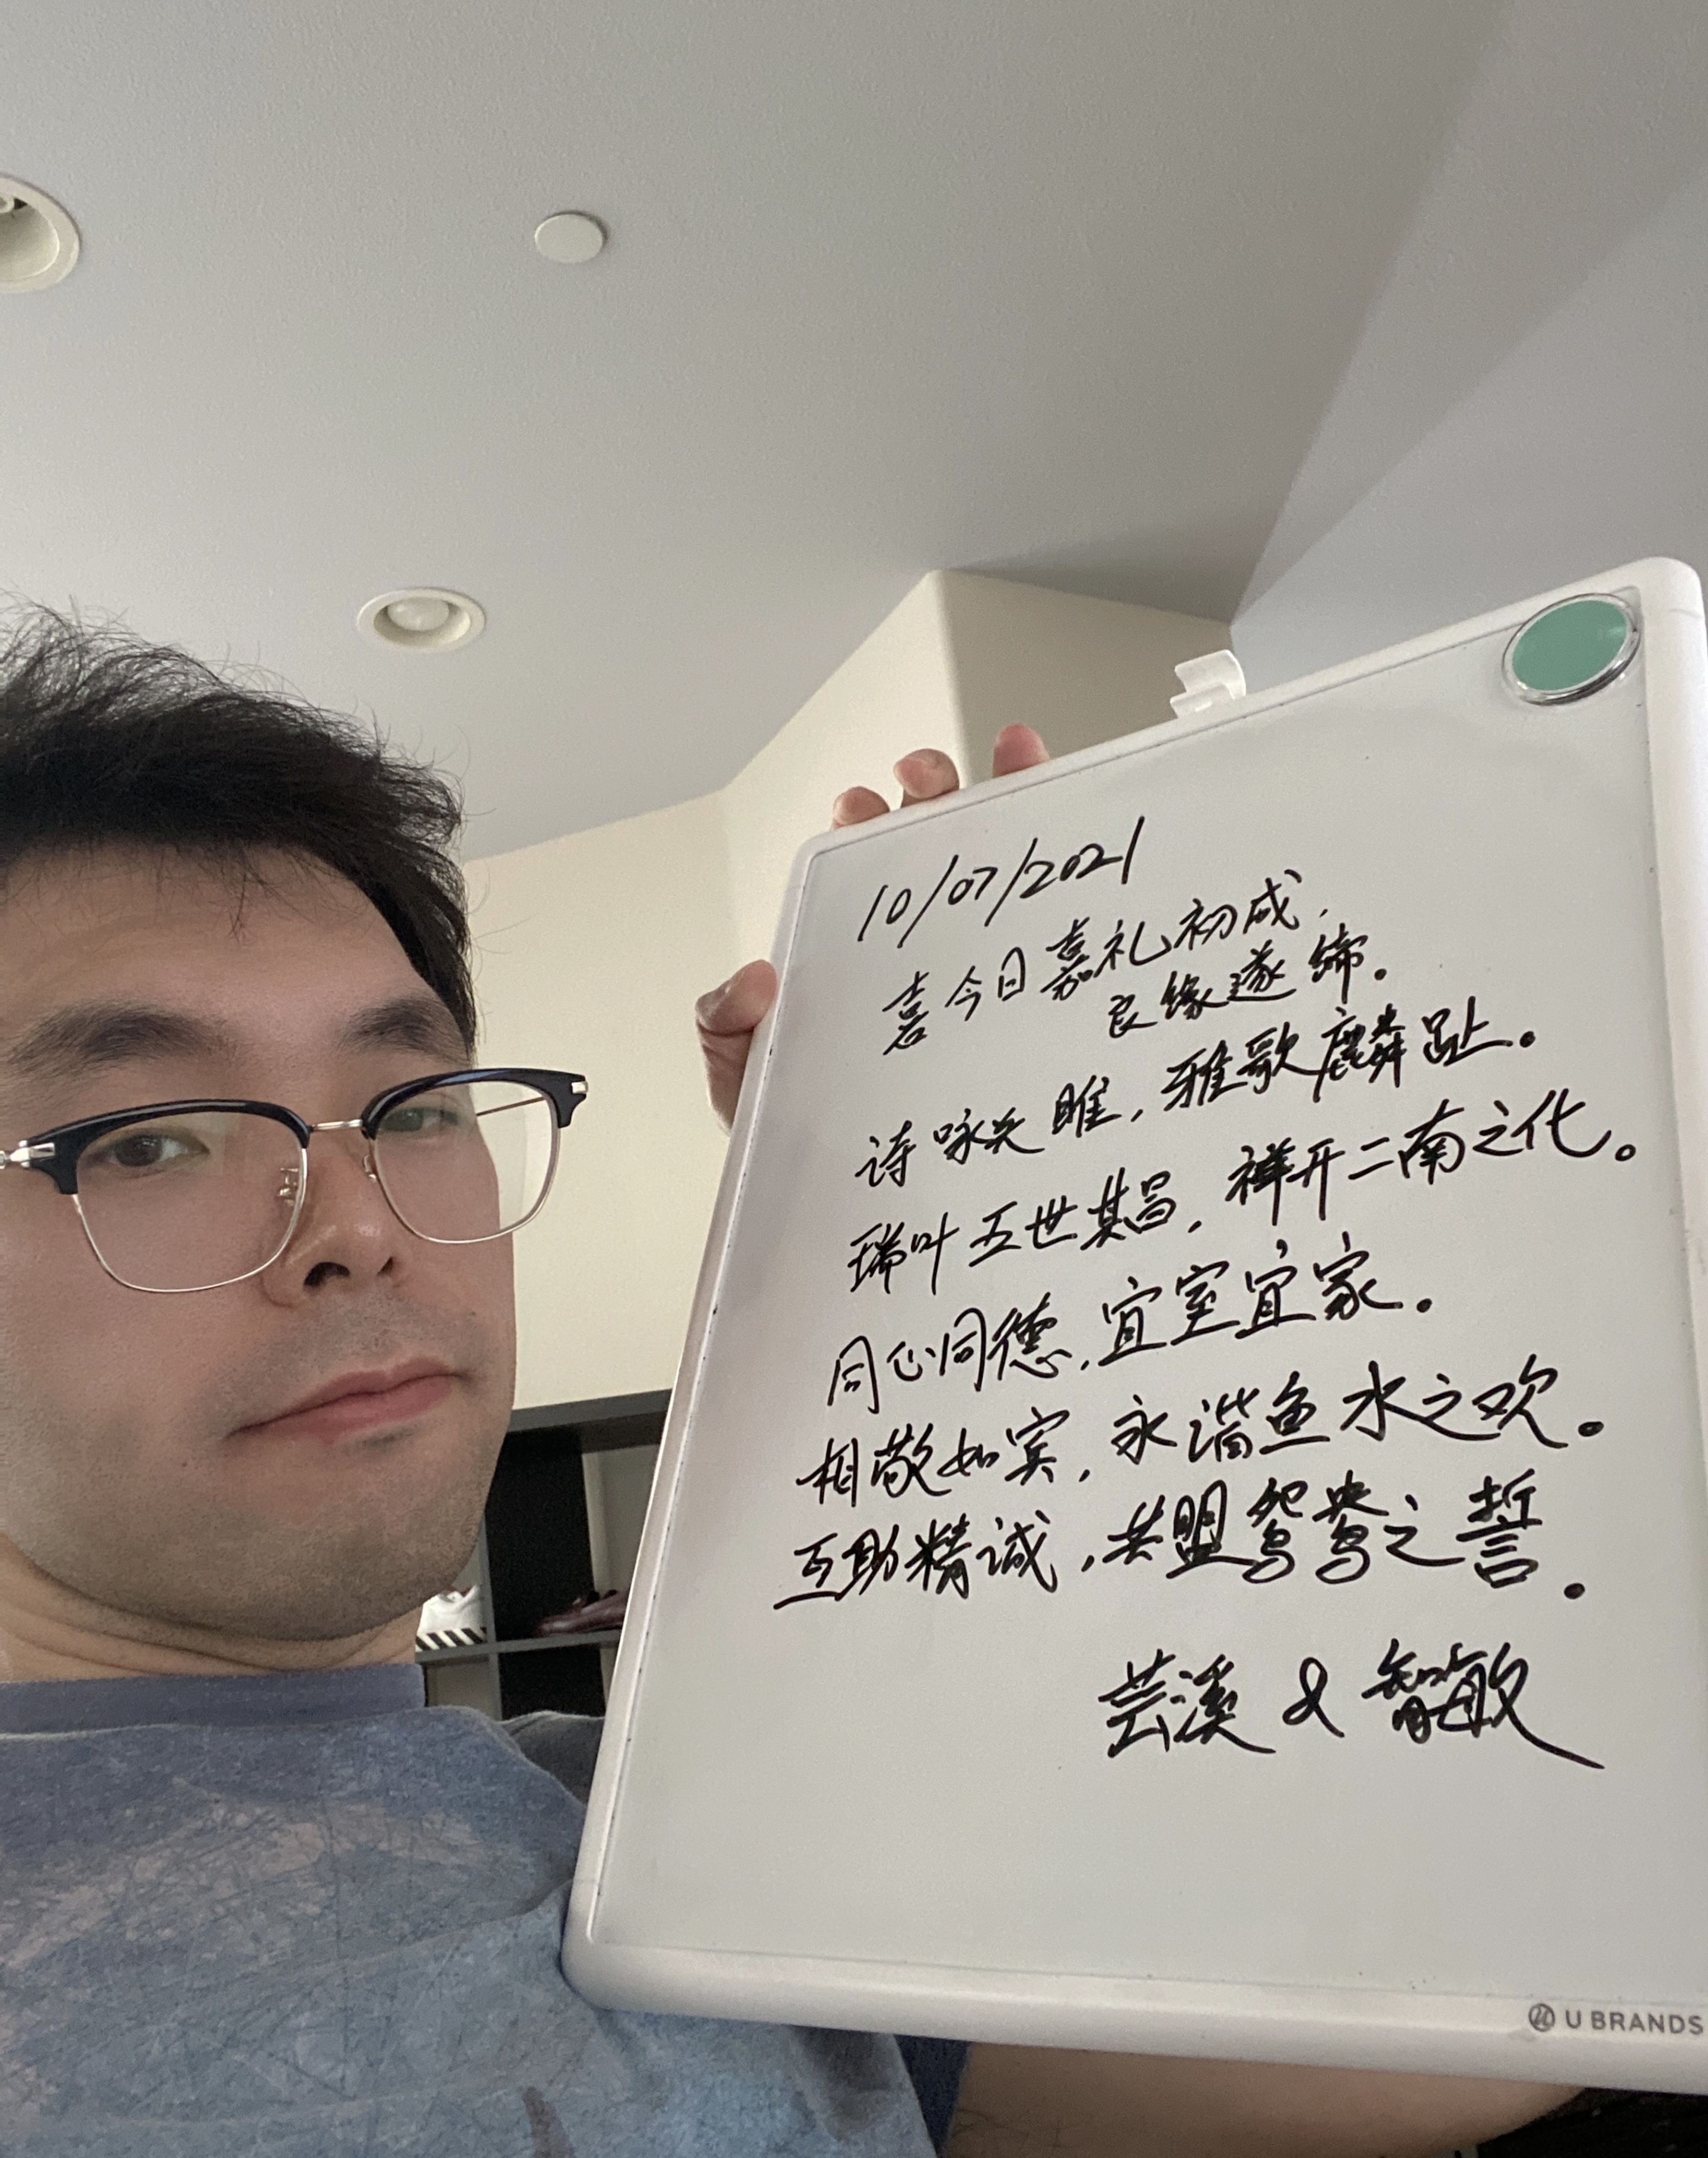 10/07/2021
喜今日嘉礼初成，
良缘遂缔。
诗咏关雎，雅歌麟趾。
瑞叶五世其昌，祥开二南之化。
同心同德，宜室宜家。
相敬如宾，永谐鱼水之欢。
互助精诚，共盟鸳鸯之誓。
芸溪 & 智敏
U BRANDS